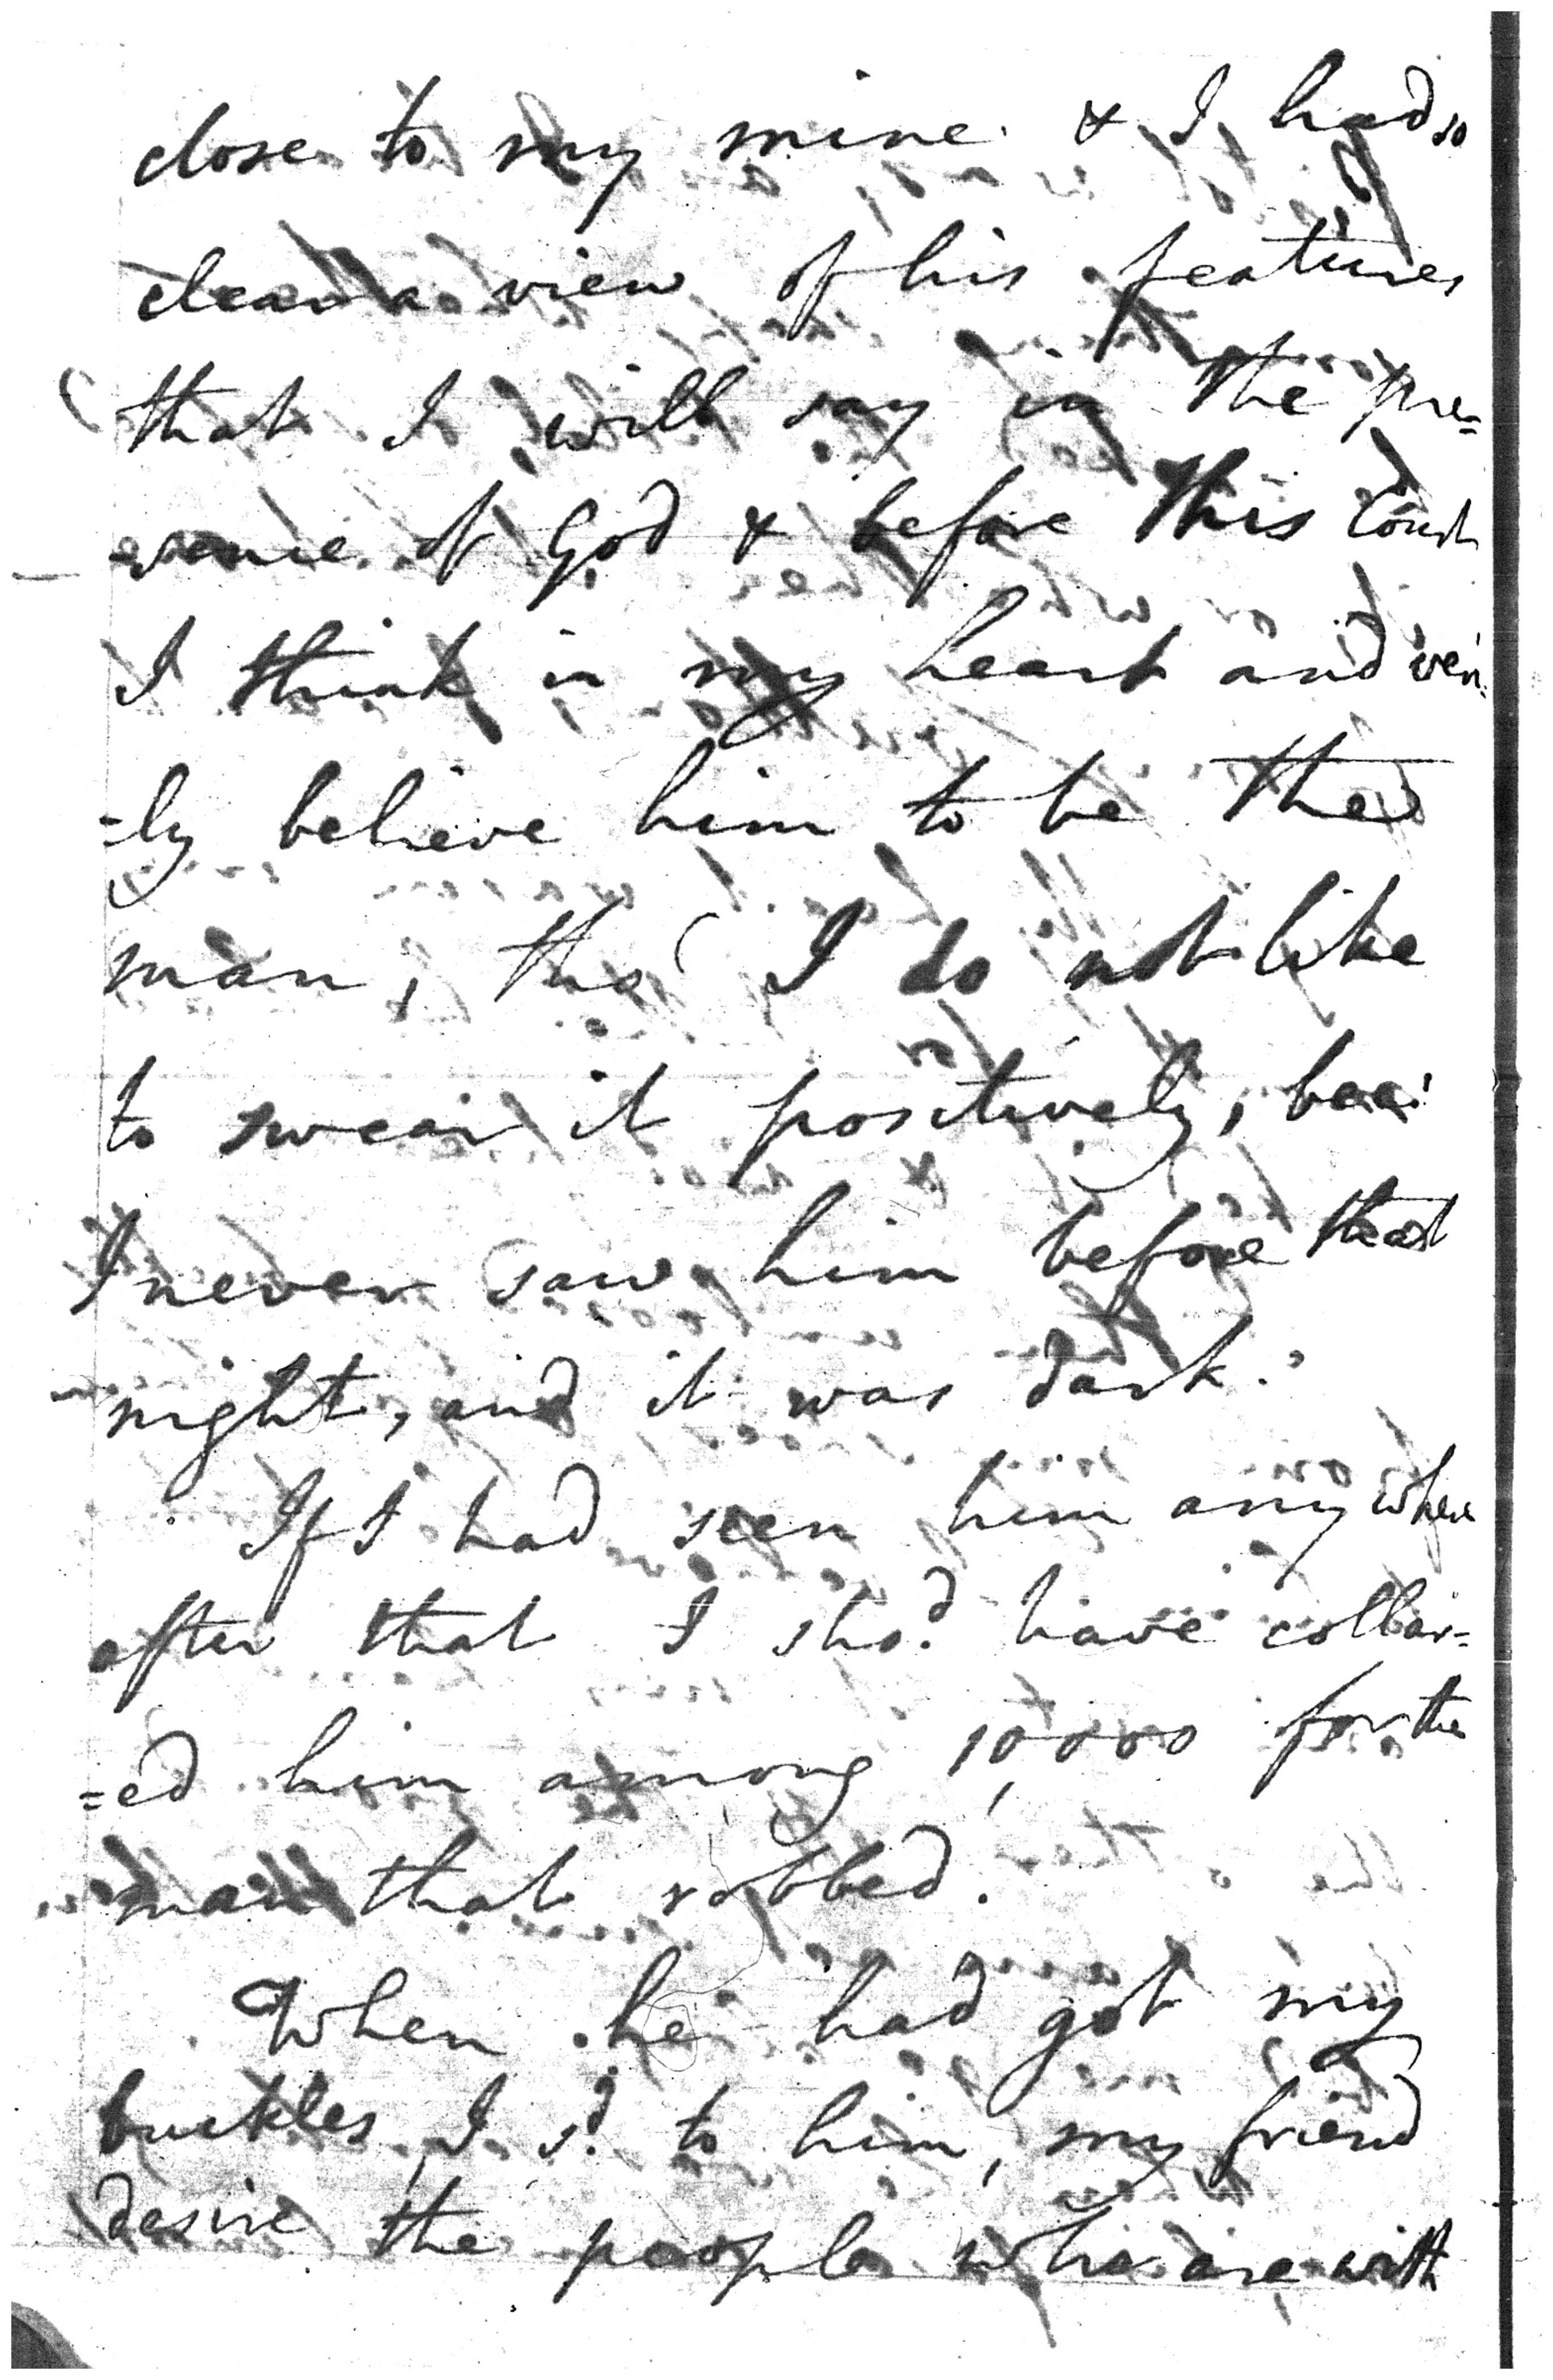 close to my mine & I had so
clear a view of his features
that I will say in the pre=
sence of God & before this Court
I think in my heart and veri=
=ly believe him to be the
man, tho' I do not like
to swear it positively, bec:
I never saw him before that
night, and it was dark.
If I had seen him any where
after that I sho.d have collar=
=ed him among 10,000 for the
man that robbed.
When he had got my
buckles, I s.d to him, my friend
desire the people who are with